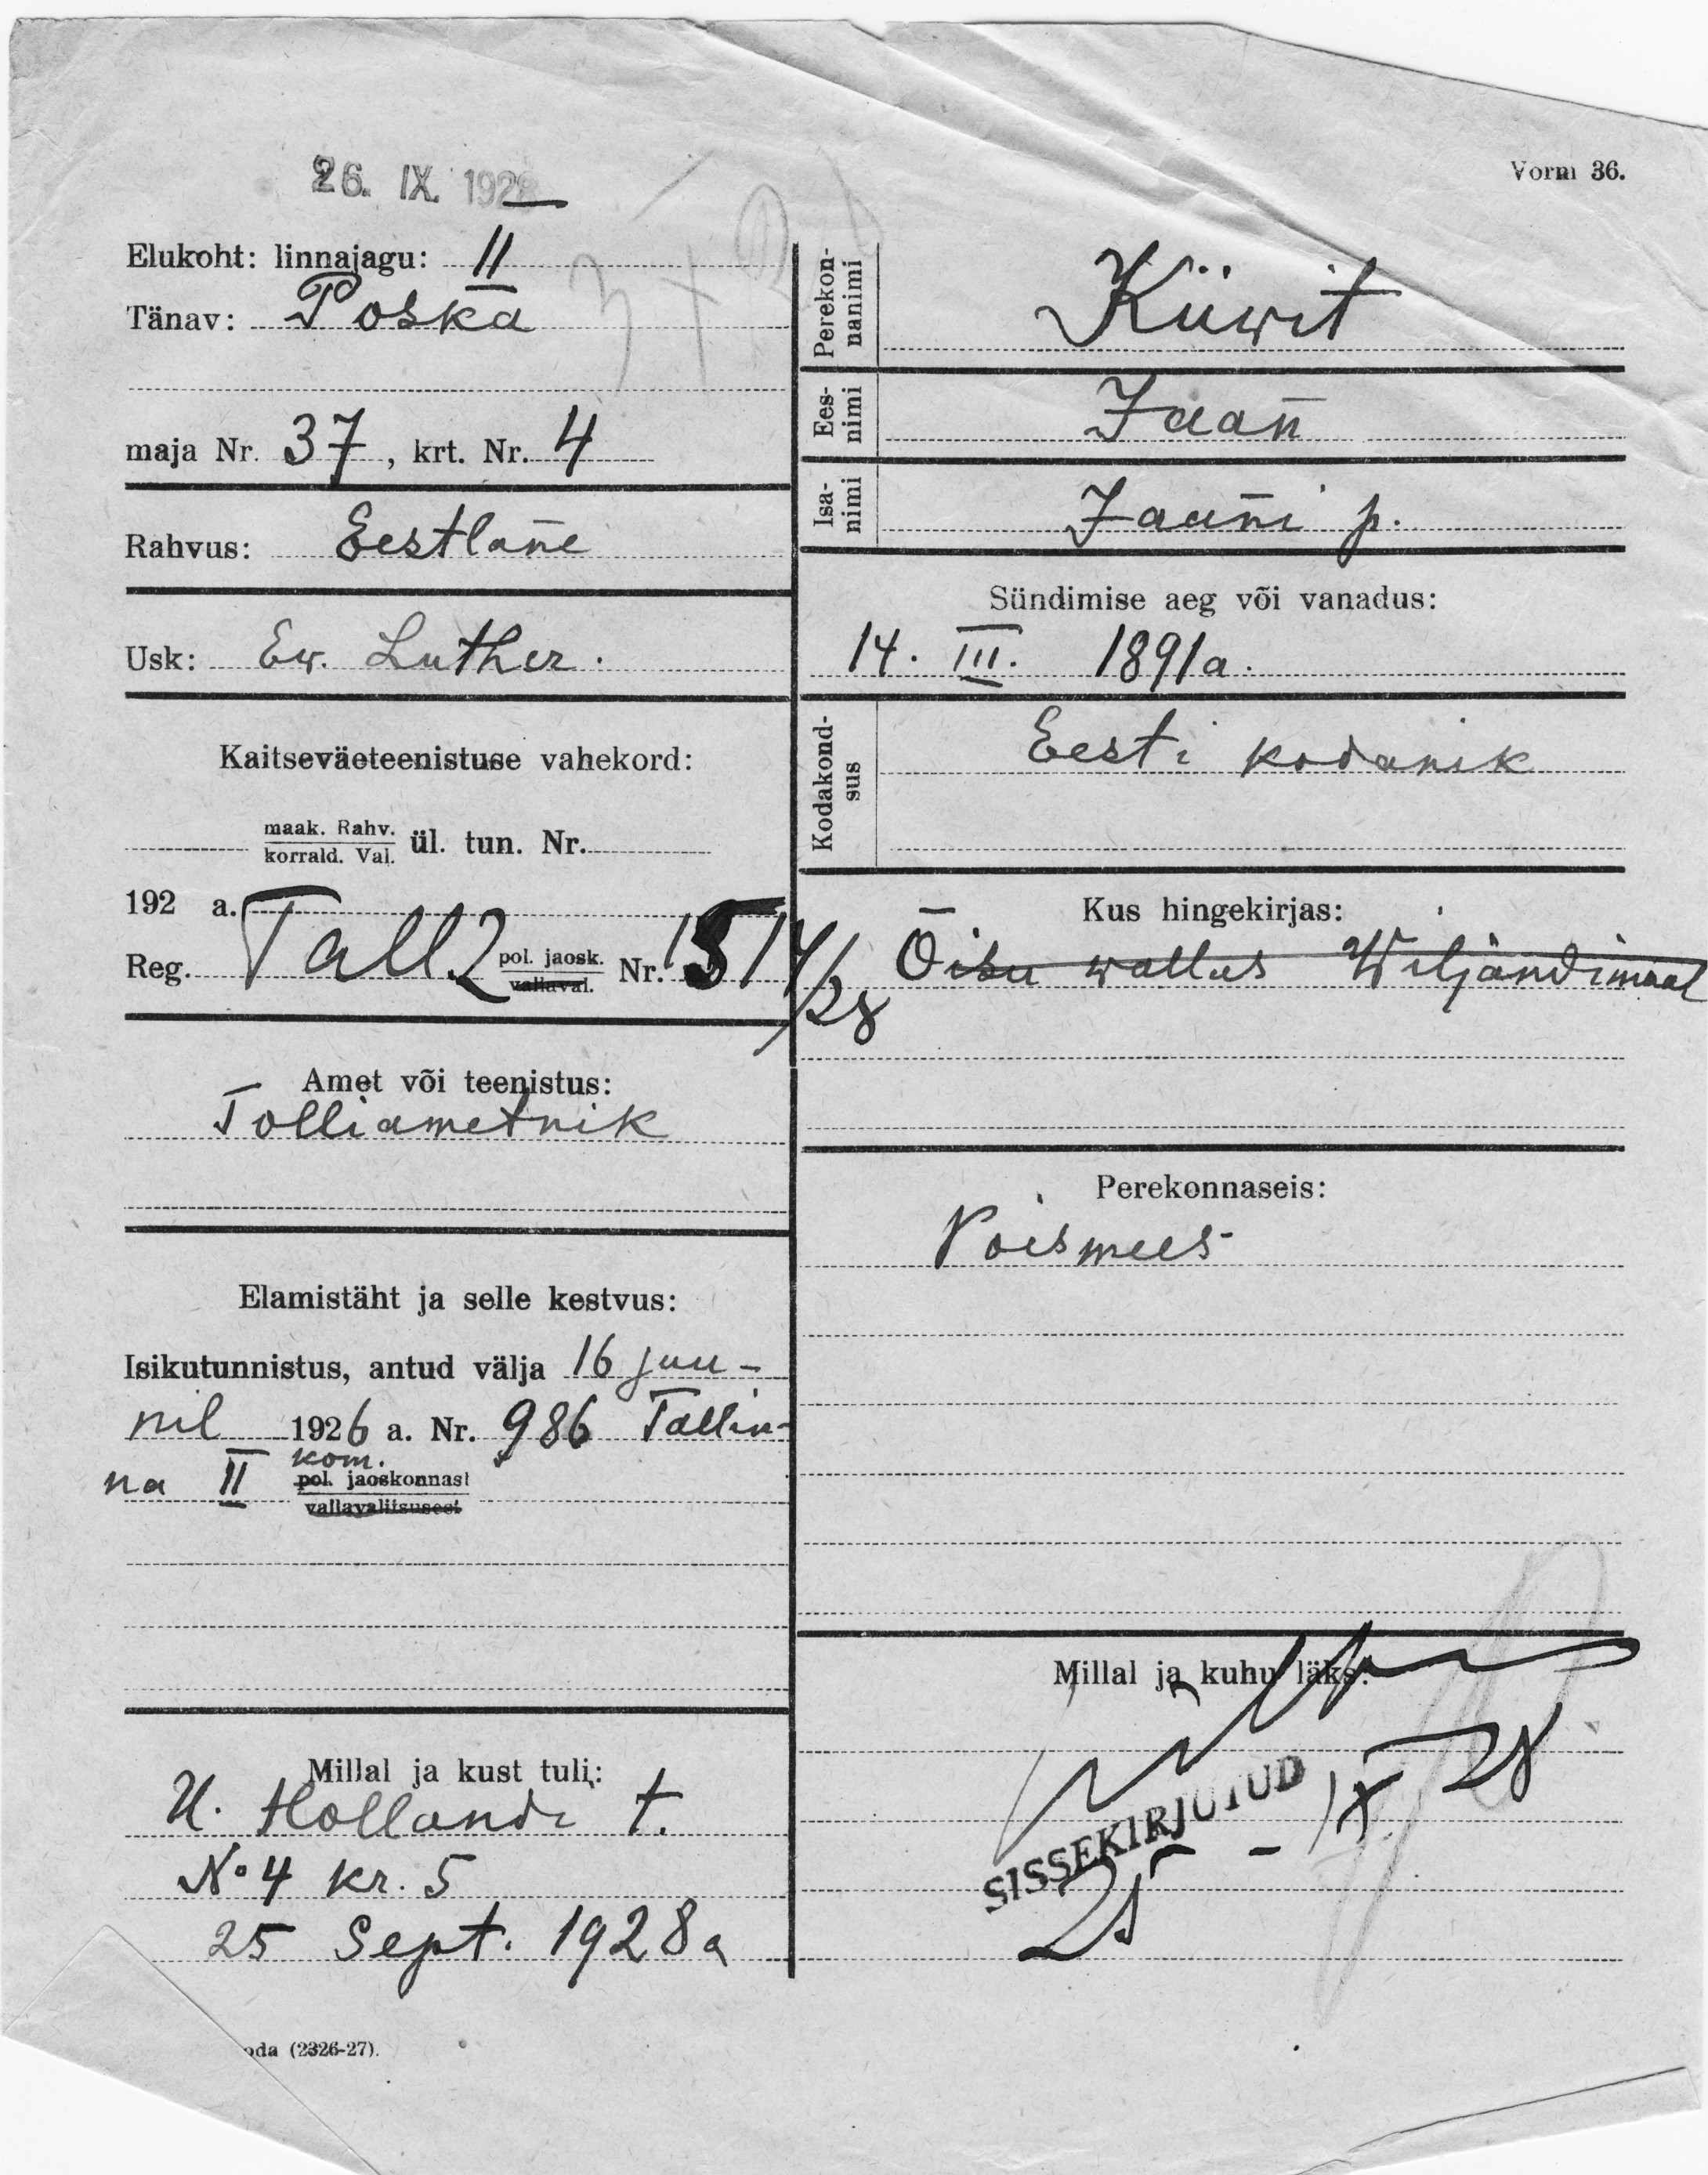 26. IX. 1928
Vorm 36.
Elukoht: linnajagu: II
Tänav: Poska
maja Nr. 37, krt. Nr. 4
Rahvus: Eestlane
Usk: Ew. Luther.
Kaitseväeteenistuse vahekord:
maak. Rahv.
korrald. Val. ül. tun. Nr.
192 a.
Reg. Tall 2 pol. jaosk. Nr. 1514/28
vallaval.
Amet või teenistus:
Tolliametnik
Elamistäht ja selle kestvus:
Isikutunnistus, antud välja 16 juu-
nil 1926 a. Nr. 986 Tallin-
kom.
na II pol. jaoskonnast
vallavalitsusest
Millal ja kust tuli:
U. Hollandi t.
No 4 kr. 5
25 Sept. 1928 a
oda (2326-27).
Perekon-
nanimi
Küwit
Ees-
nimi
Jaan
Isa-
nimi
Jaani p.
Sündimise aeg või vanadus:
14. III. 1891 a.
Kodakond-
sus
Eesti kodanik
Kus hingekirjas:
Õisu wallas Wiljandimaal
Perekonnaseis:
Poismees
Millal ja kuhu läks:
SISSEKIRJUTUD
25 - IX 28